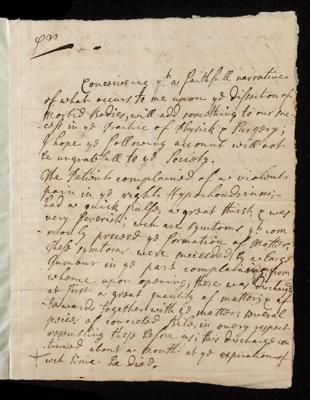 Conceiving yt a faithfull narrative
of what occurs to me upon ye dissection of
Morbid Bodies, will add something to our suc-
-cess in ye Practice of Physick & Surgery;
I hope ye following account will not
be ungratefull to ye Society.
The Patient complained of a violent
pain in ye right Hypochondrium;
had a quick pulse, a great thirst, & was
very feverish; wch are symtoms yt com
monly preceed ye formation of Matter,
These symtoms were succeeded by a large
tumour in ye part complained
whence upon opening, there was discharg'd
at first a great quantity of matter; & af
terwards together with ye matter several
peices of concreted Bile, in every respect
resembling these before us; this discharge con
tinued about a month at ye expiration of
wch time he died.